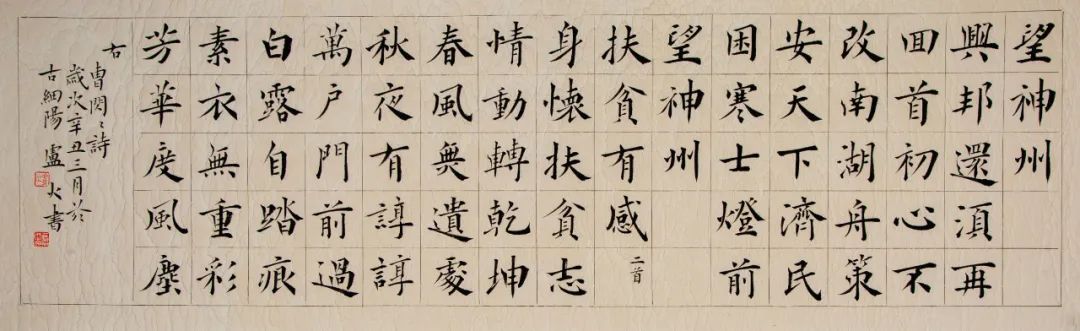 望神州
興邦還湏再
囬首初心不
改南湖舟策
安天下濟民
困寒士燈前
望神州
扶貧有感 二首
身懷扶貧志
情動轉乾坤
春風無遺處
秋夜有諄諄
萬戶門前過
白露自踏痕
素衣無重彩
芳華度風塵
右曹閃々詩
歲次辛丑三月於
古細陽盧火書